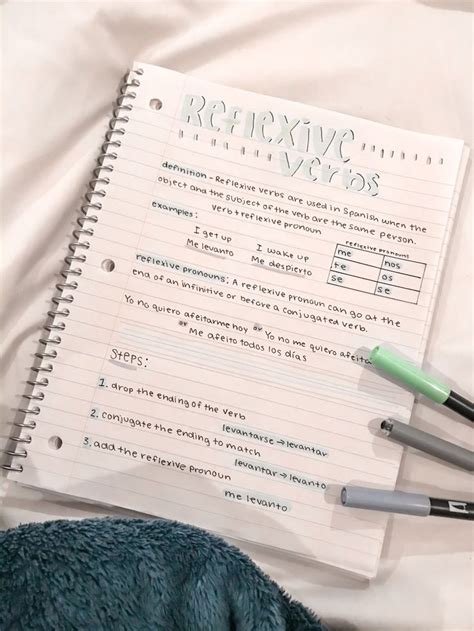 Reflexive
verbs
definition - Reflexive verbs are used in Spanish when the
object and the subject of the verb are the same person.
verb + reflexive pronoun
examples:
I get up
Me levanto
I wake up
Me despierto
reflexive pronouns
me nos
te os
se se
reflexive pronouns: A reflexive pronoun can go at the
end of an infinitive or before a conjugated verb.
Yo no quiero afeitarme hoy or Yo no me quiero afeita
or Me afeito todos los días
Steps:
1. drop the ending of the verb
levantarse → levantar
2. conjugate the ending to match
levantar → levanto
3. add the reflexive pronoun
me levanto